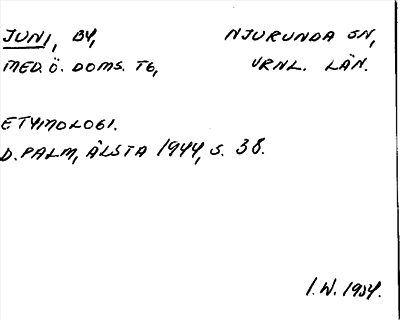 JUNI, BY, NJURUNDA SN,
MED. Ö. DOMS. TG, VRNL. LÄN.
ETYMOLOGI.
D. PALM, ÄLSTA 1944, S. 38.
I. W. 1954.